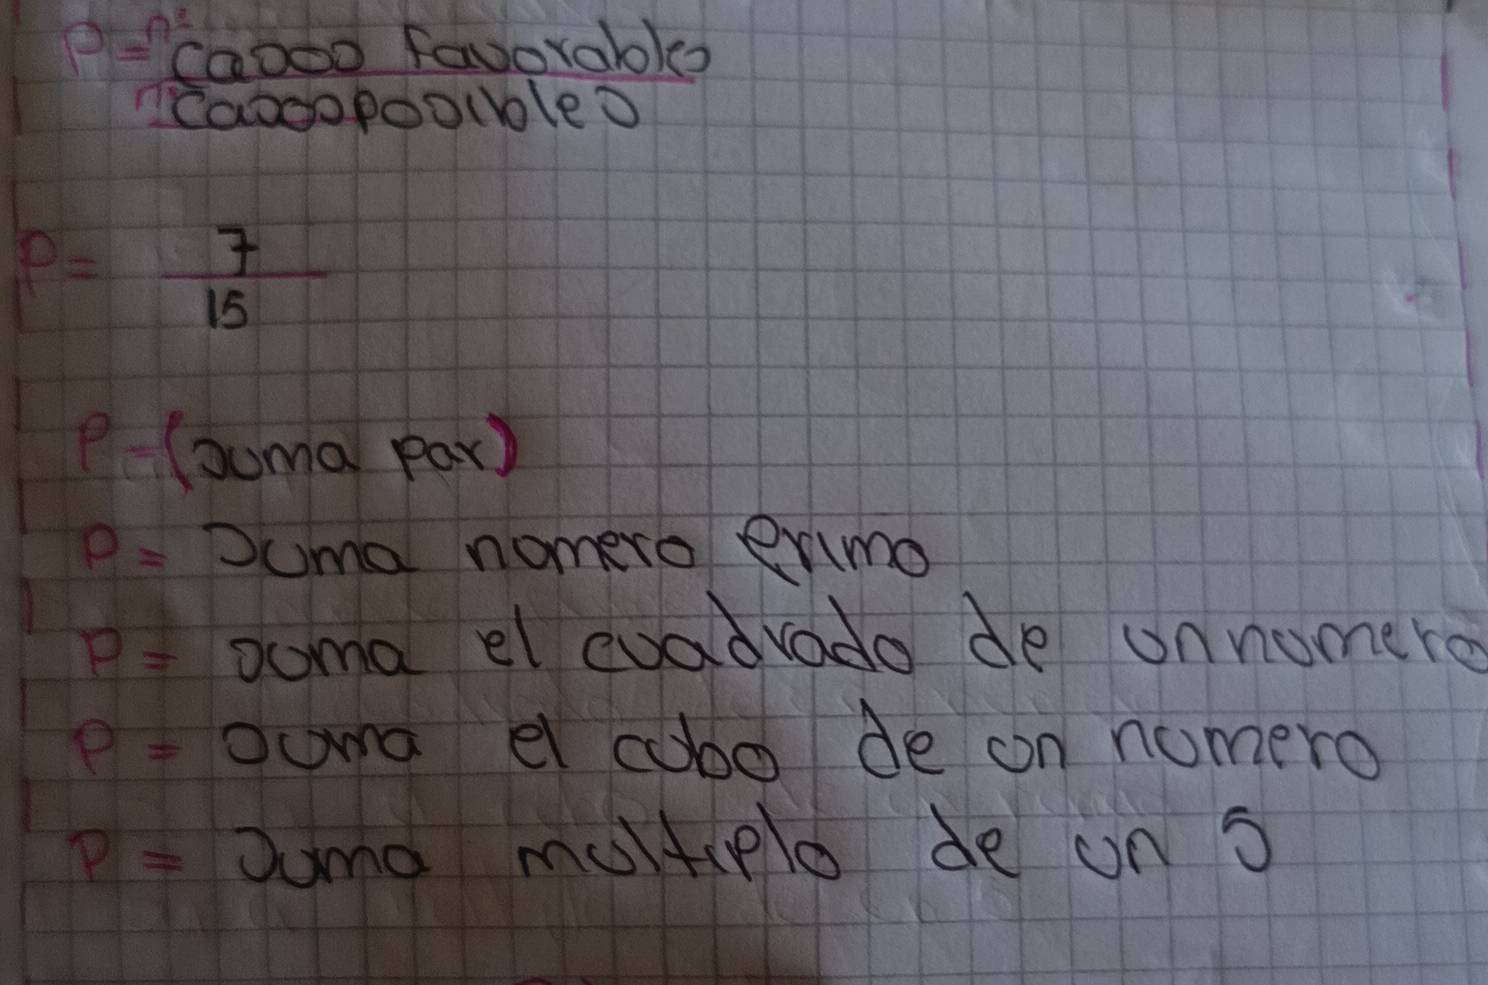 P= n° casos favorables
n° casos posibles
P= 7
15
P=(suma par)
P= Suma nomero primo
P= suma el cuadrado de un numero
P= suma el cubo de un numero
P= Suma multiplo de un 5